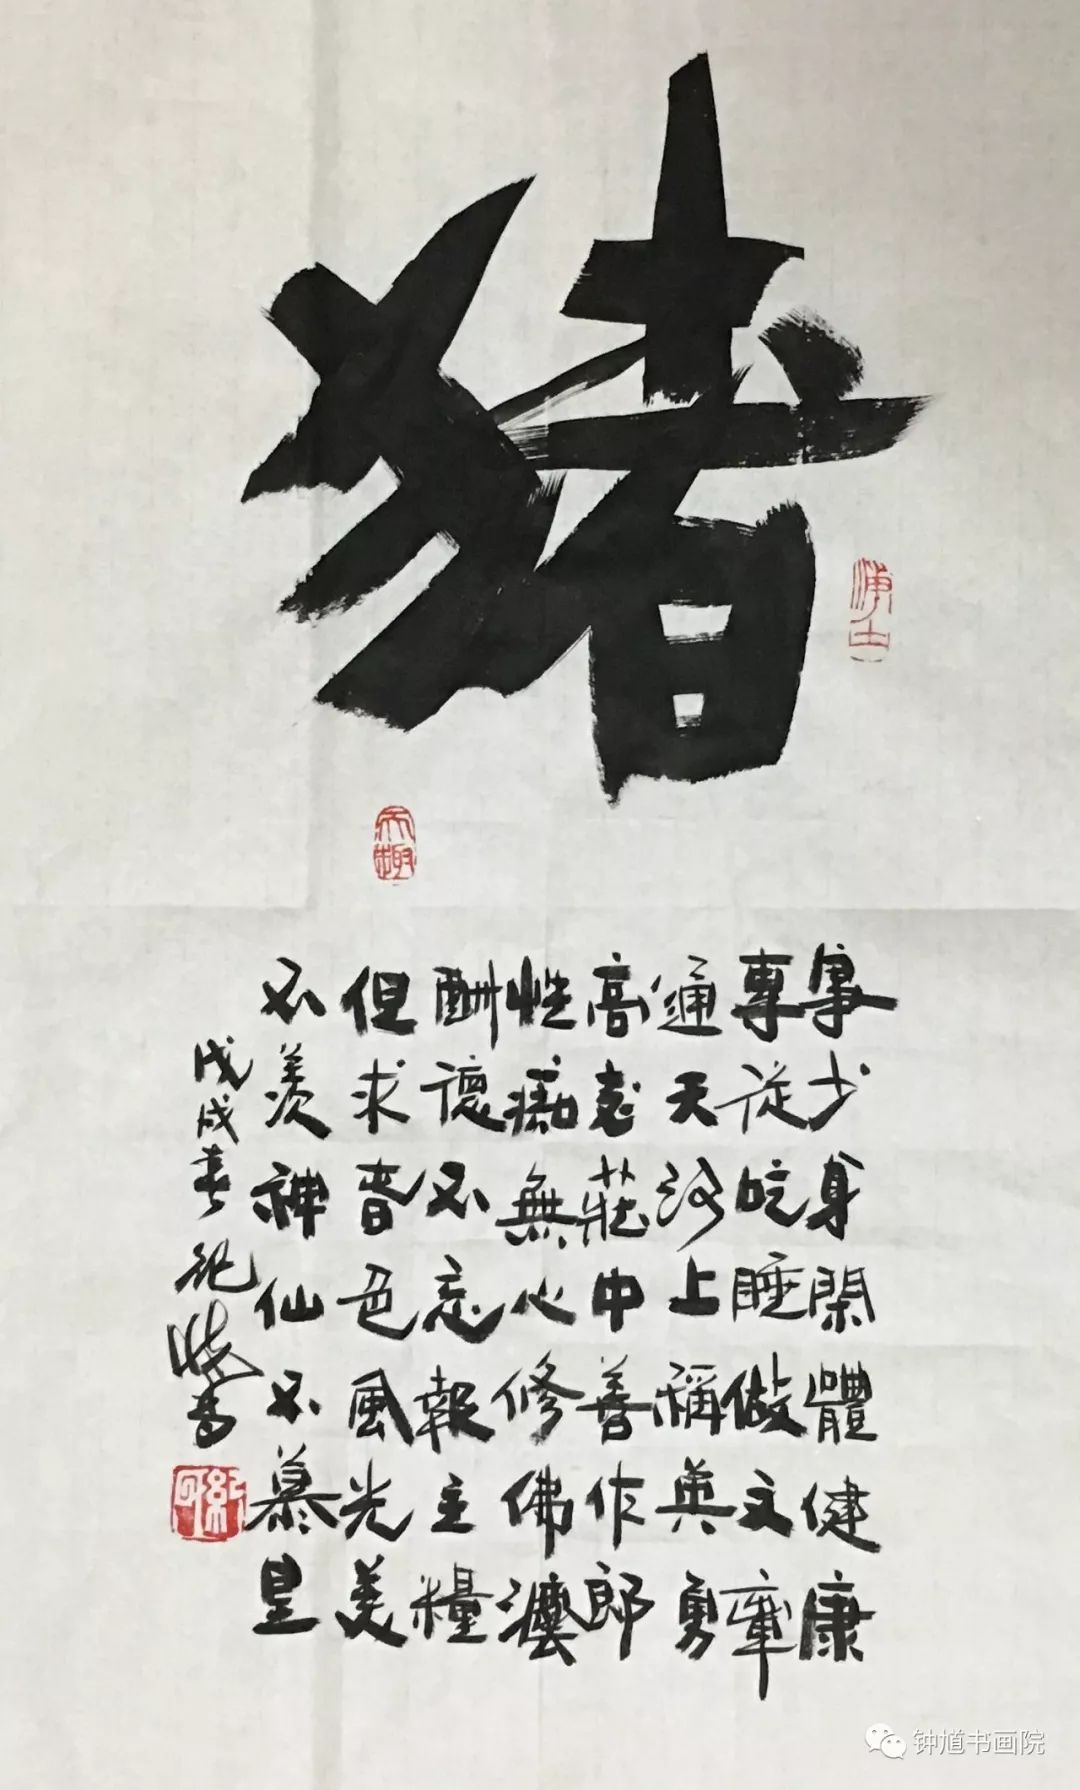 猪
事少身閑體健康
專從吃睡做文章
通天河上稱英勇
高老莊中善作郎
性痴無心修佛法
酬德不忘報主糧
但求春色風光美
不羨神仙不慕皇
戊戌春
天趣
钟馗书画院